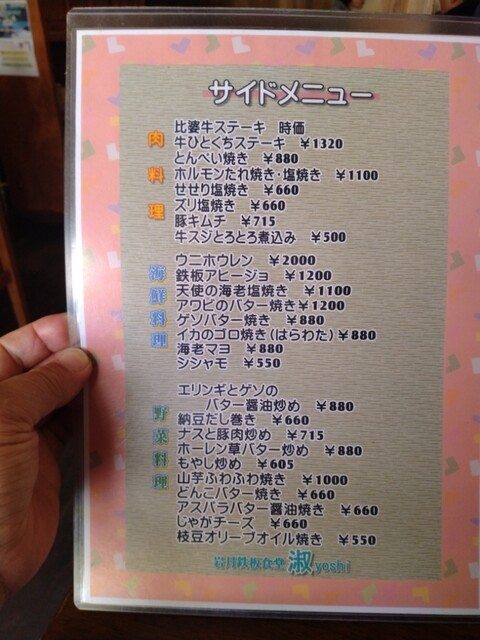 サイドメニュー
肉料理
比婆牛ステーキ 時価
牛ひとくちステーキ ¥1320
とんぺい焼き ¥880
ホルモンたれ焼き・塩焼き ¥1100
せせり塩焼き ¥660
ズリ塩焼き ¥660
豚キムチ ¥715
牛スジとろとろ煮込み ¥500
海鮮料理
ウニホウレン ¥2000
鉄板アヒージョ ¥1200
天使の海老塩焼き ¥1100
アワビのバター焼き¥1200
ゲソバター焼き ¥880
イカのゴロ焼き(はらわた)¥880
海老マヨ ¥880
シシャモ ¥550
野菜料理
エリンギとゲソの
バター醤油炒め ¥880
納豆だし巻き ¥660
ナスと豚肉炒め ¥715
ホーレン草バター炒め ¥880
もやし炒め ¥605
山芋ふわふわ焼き ¥1000
どんこバター焼き ¥660
アスパラバター醤油焼き ¥660
じゃがチーズ ¥660
枝豆オリーブオイル焼き ¥550
鉄板食堂 淑 yoshi